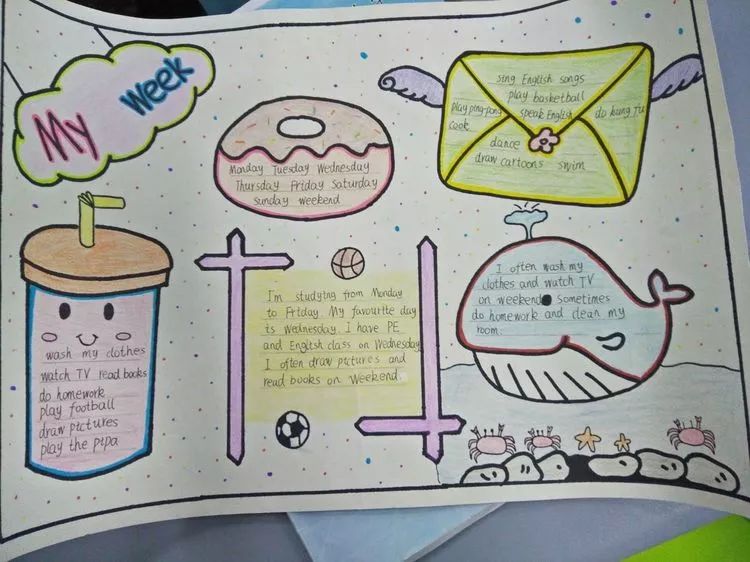 My Week
Monday Tuesday Wednesday
Thursday Friday Saturday
sunday weekend
sing English songs
play basketball
play ping-pong speak English do kung fu
cook
dance
draw cartoons swim
wash my clothes
watch TV read books
do homework
play football
draw pictures
play the pipa
I'm studying from Monday
to Friday. My favourite day
is Wednesday. I have PE
and English class on Wednesday
I often draw pictures and
read books on Weekend.
I often wash my
clothes and watch TV
on weekend sometimes
do homework and clean my
room.